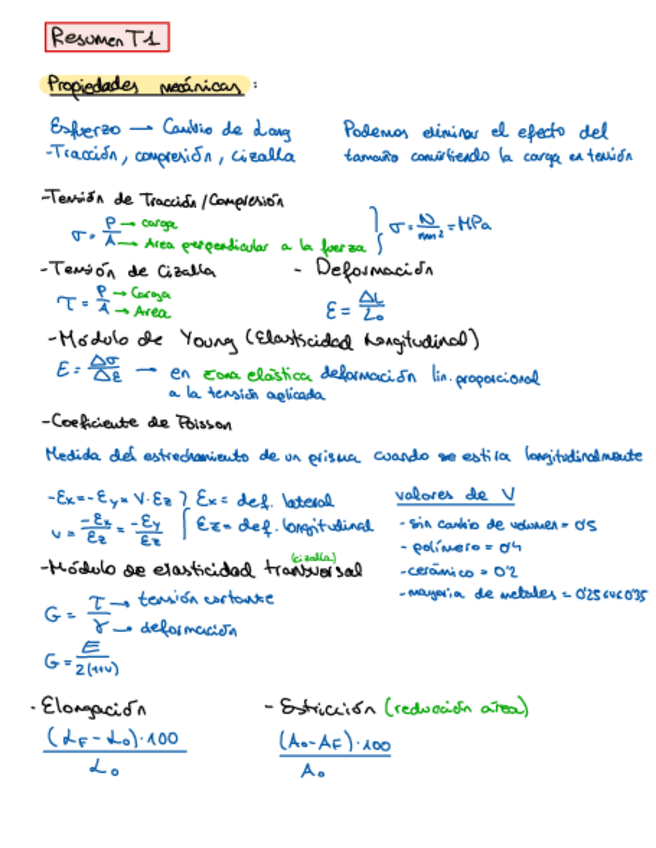 Resumen T1
Propiedades mecánicas:
Esfuerzo → Cambio de Long
-Tracción, compresión, cizalla
Podemos eliminar el efecto del
tamaño convirtiendo la carga en tensión
-Tensión de Tracción/Compresión
σ = P/A
P → carga
A → Area perpendicular a la fuerza
σ = N/mm² = MPa
-Tensión de Cizalla
τ = P/A
P → Carga
A → Area
- Deformación
ε = ΔL/L₀
-Módulo de Young (Elasticidad Longitudinal)
E = Δσ/Δε → en zona elástica deformación lin. proporcional
a la tensión aplicada
-Coeficiente de Poisson
Medida del estrechamiento de un prisma cuando se estira longitudinalmente
-εx = -εy = ν·εz
εx = def. lateral
ν = -εx/εz = -εy/εz
εz = def. longitudinal
valores de ν
- sin cambio de volumen = 0'5
- polímero = 0'4
- cerámico = 0'2
- mayoria de metales = 0'25<ν<0'35
-Módulo de elasticidad transversal
(cizalla)
G = τ/γ
τ → tensión cortante
γ → deformación
G = E/2(1+ν)
- Elongación
(LF - L₀)·100
L₀
- Estricción (reducción área)
(A₀-AF)·100
A₀